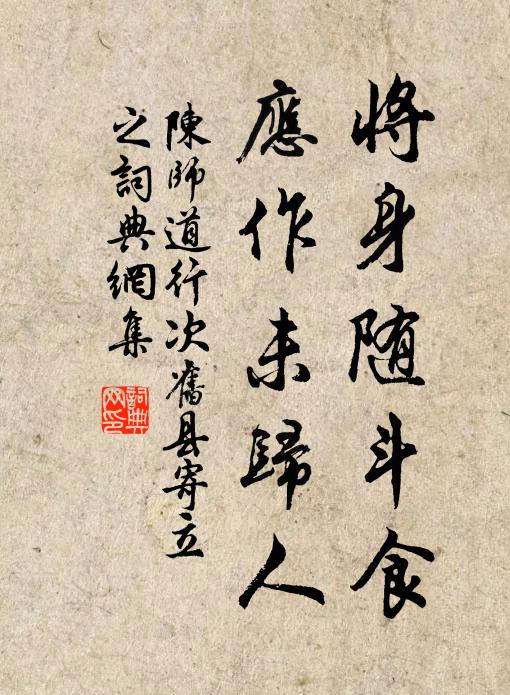 将身随斗食
應作未歸人
陳師道行次舊县寄立
之詞典網集
詞典
网印